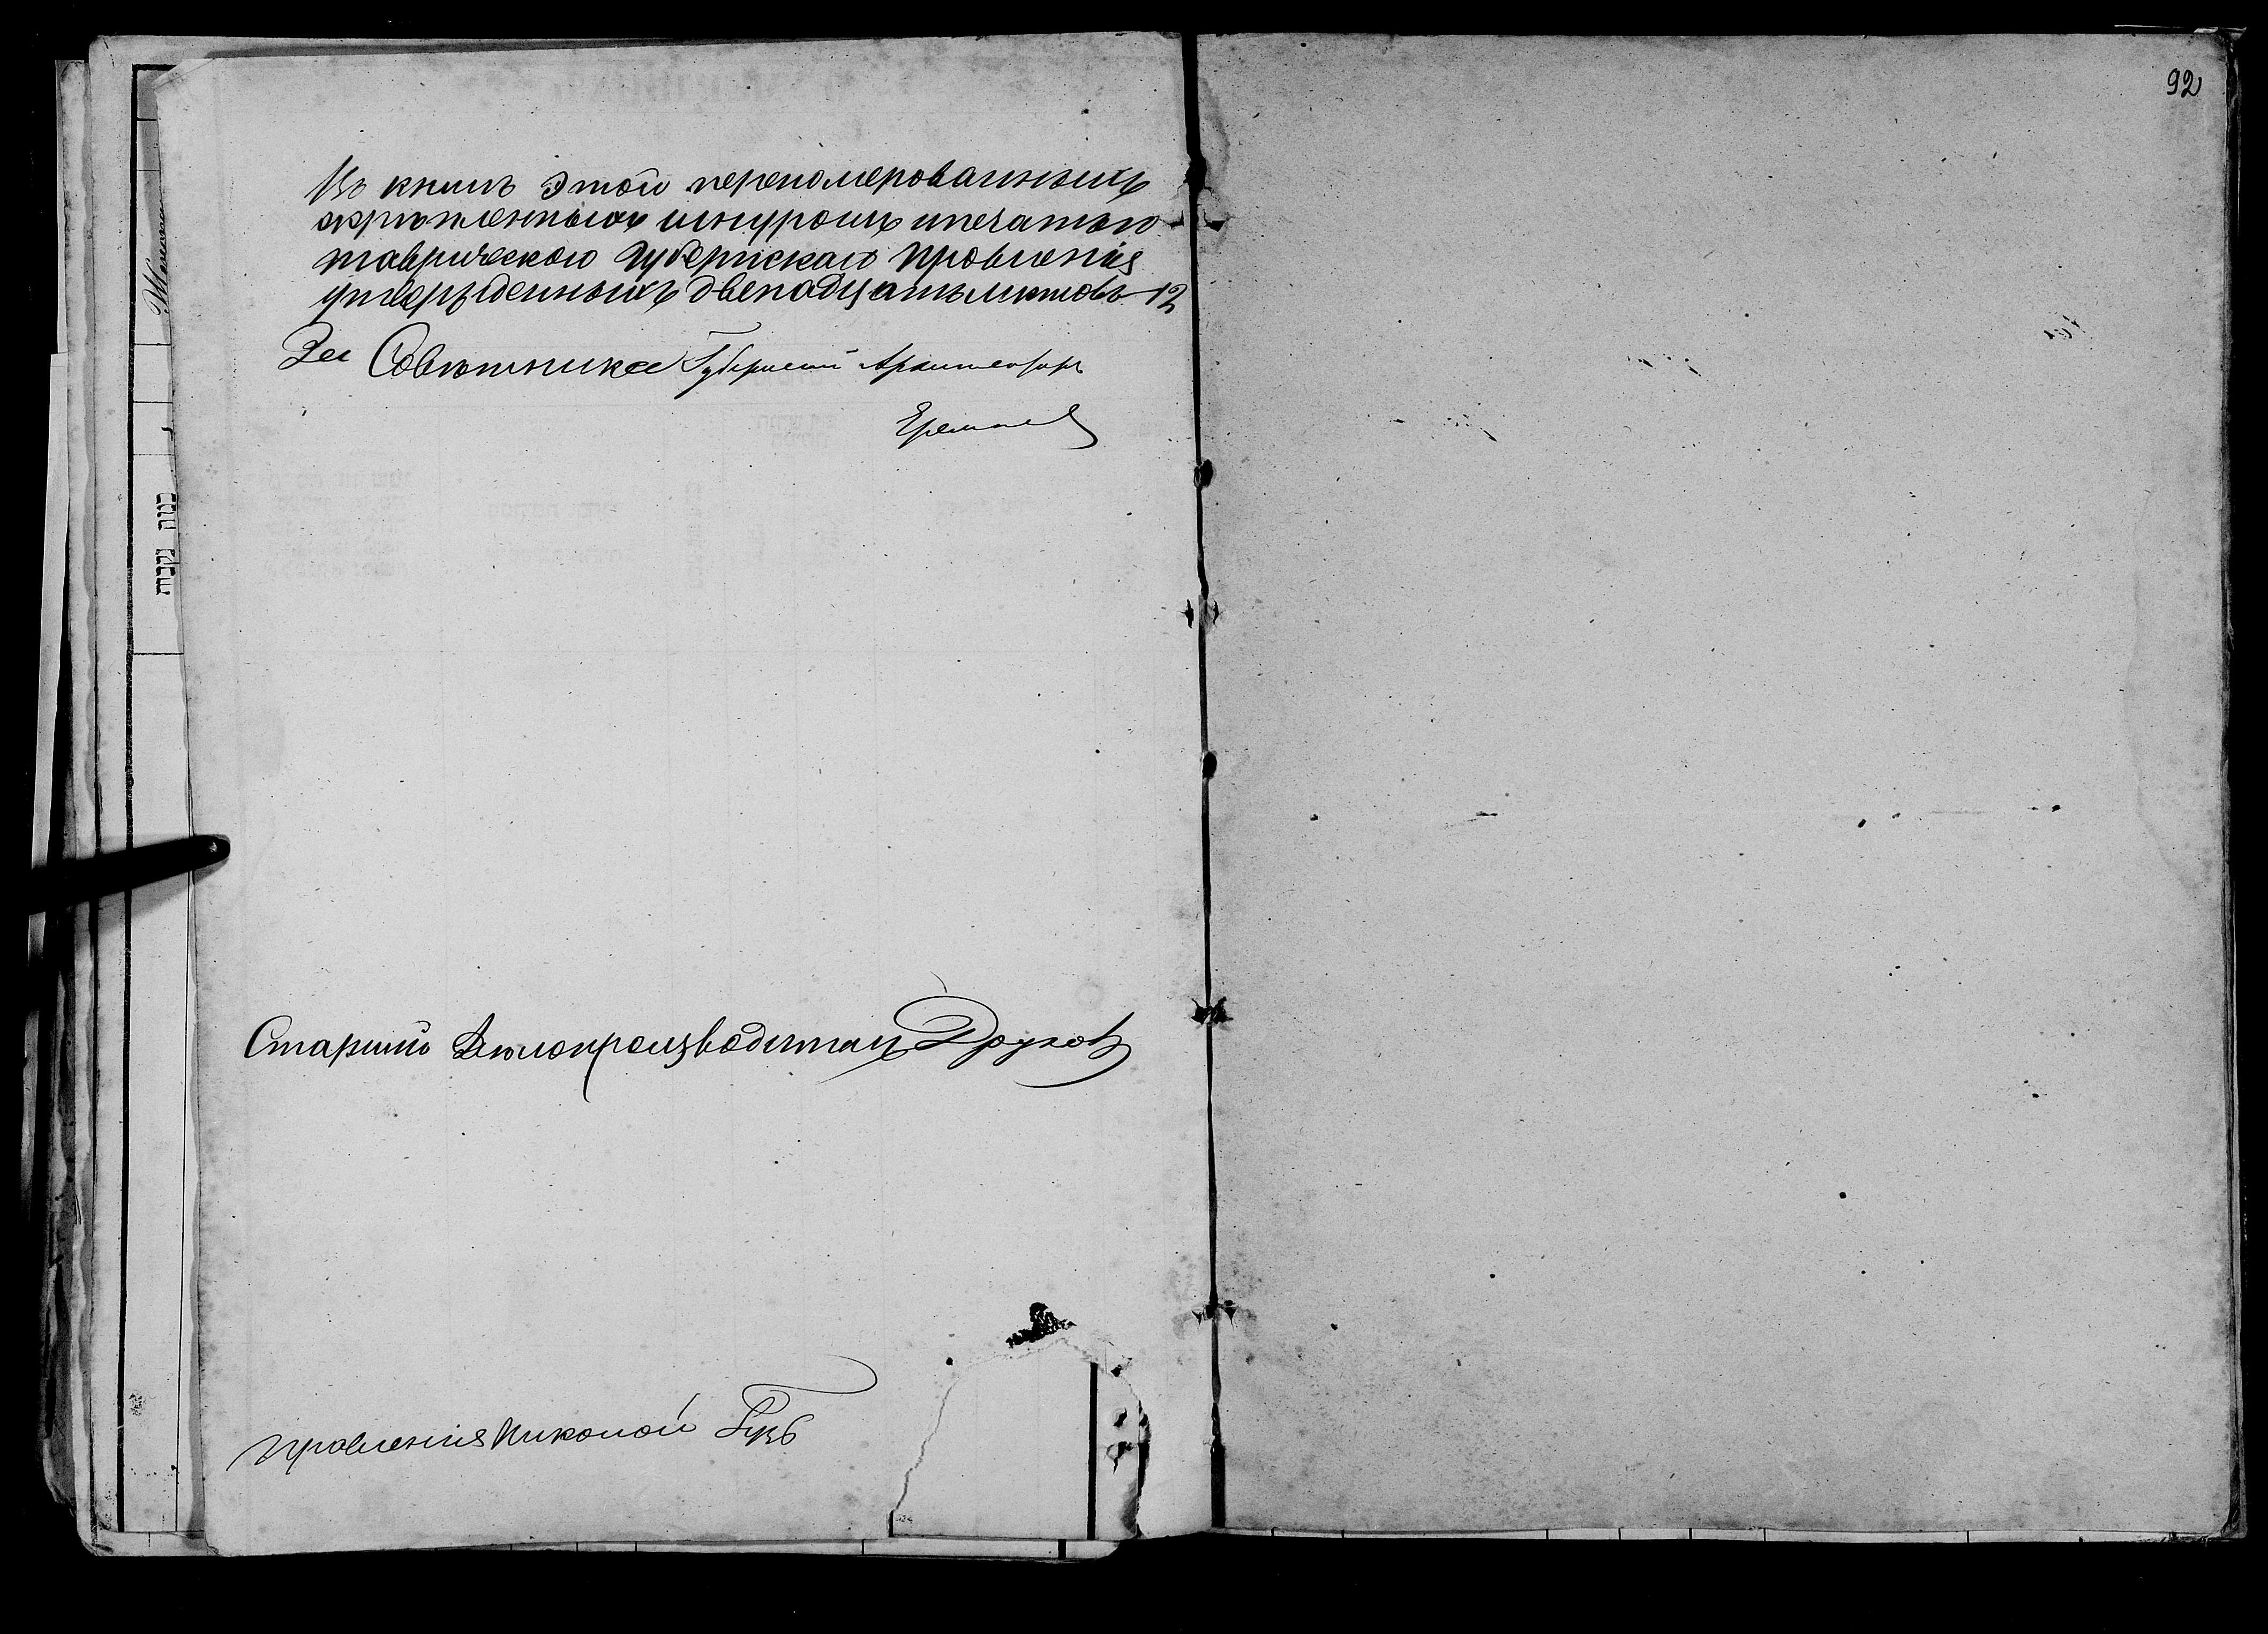 92
Въ книгѣ этой перепомерованныхъ
скрѣпленныхъ шнуромъ ипечатью
таврическаго Губернскаго Правленія
утвержденныхъ двенадцать листовъ 12
За Совѣтника Губернскій Архитекторъ
Старшій Дѣлопроизводитель
правленія